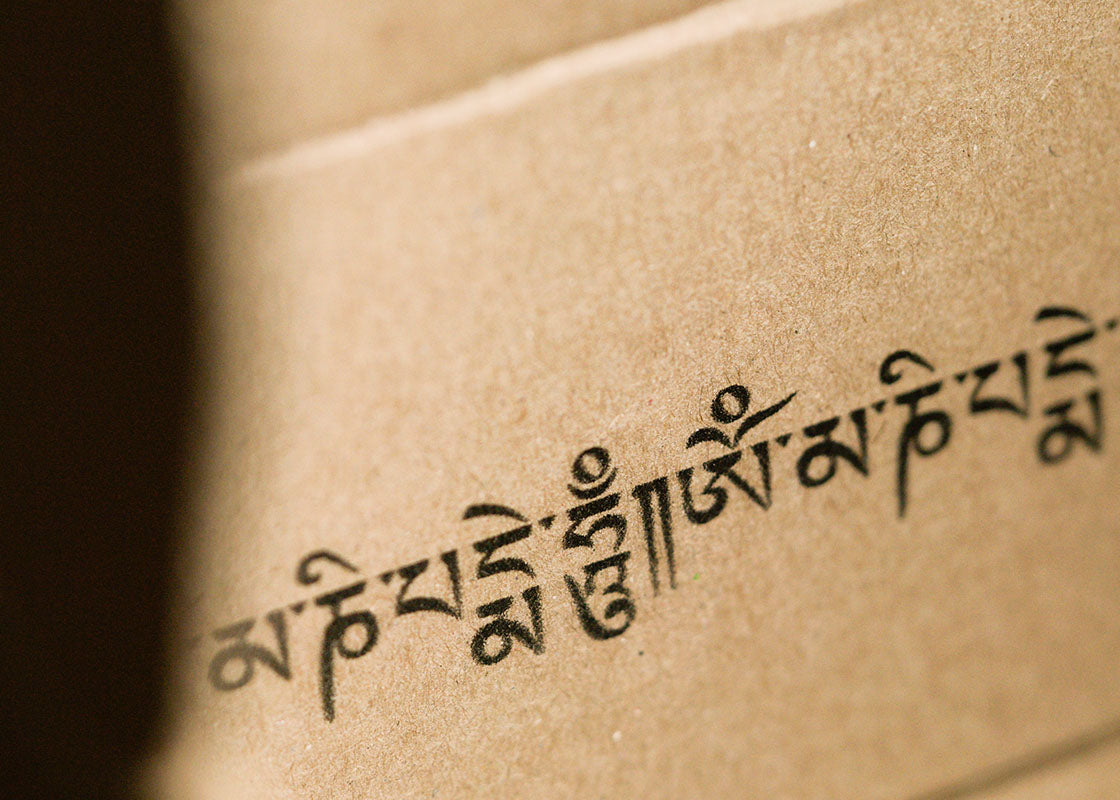 མ་ཎི་པདྨེ་ཧཱུྃ༎ཨོཾ་མ་ཎི་པདྨེ་